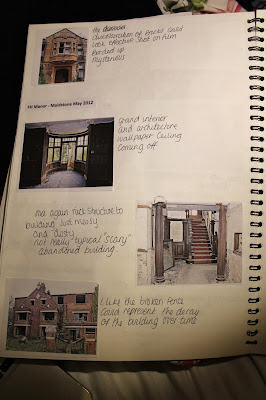 the
Discolouration of bricks could
look effective shot on film
Boarded up
mysterious
Hill Manor - Maidstone May 2012
grand interior
and architecture
wallpaper ceiling
coming off
again rack structure to
building Just messy
and dusty
not really "typical" "scary"
abandoned building.
I like the broken fence
Could represent the decay
of the building over time